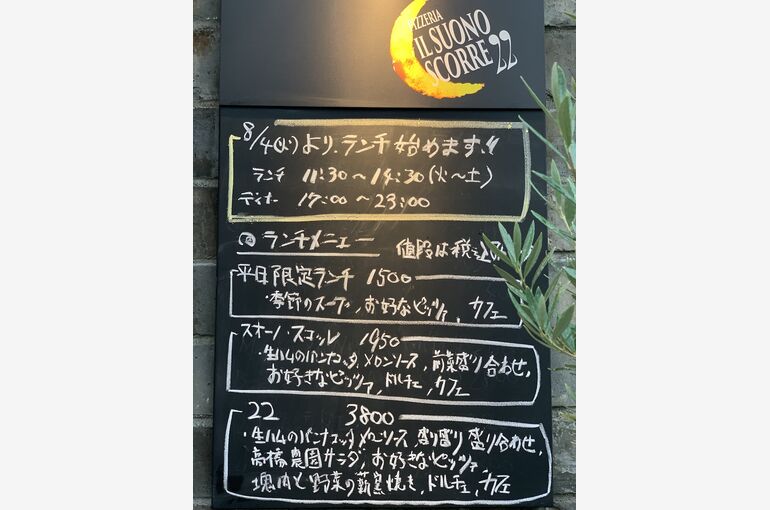 PIZZERIA
IL SUONO
SCORRE 22
8/4(火)より、ランチ始めます!!
ランチ 11:30〜14:30(火〜土)
ディナー 17:00〜23:00
◎ランチメニュー 値段は税込
平日限定ランチ 1500
・季節のスープ、お好きなピッツァ、カフェ
スオーノ・スコッレ 1950
・生ハムのパンナコッタ、メロンソース、前菜盛り合わせ、
お好きなピッツァ、ドルチェ、カフェ
22 3800
・生ハムのパンナコッタ、メロンソース、盛り盛り盛り合わせ、
高橋農園サラダ、お好きなピッツァ、
塊肉と野菜の薪窯焼き、ドルチェ、カフェ